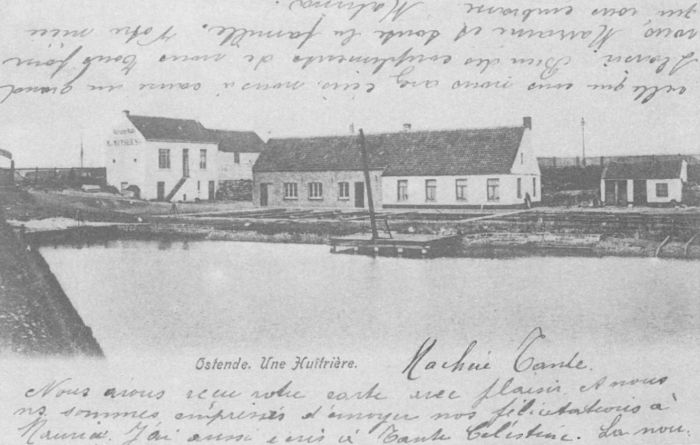 Ostende. Une Huîtrière.
Ma chère Tante.
Nous avons reçu votre carte avec plaisir, et nous
ns. sommes empressés d'envoyer nos félicitations à
Maurice. J'ai aussi écris à Tante Célestine. La nou
velle que vous nous avez mis nous a causé un grand
plaisir. Bien des compliments de nous tous pour
vous, Marraine et toute la famille. Votre nièce
qui vous embrasse